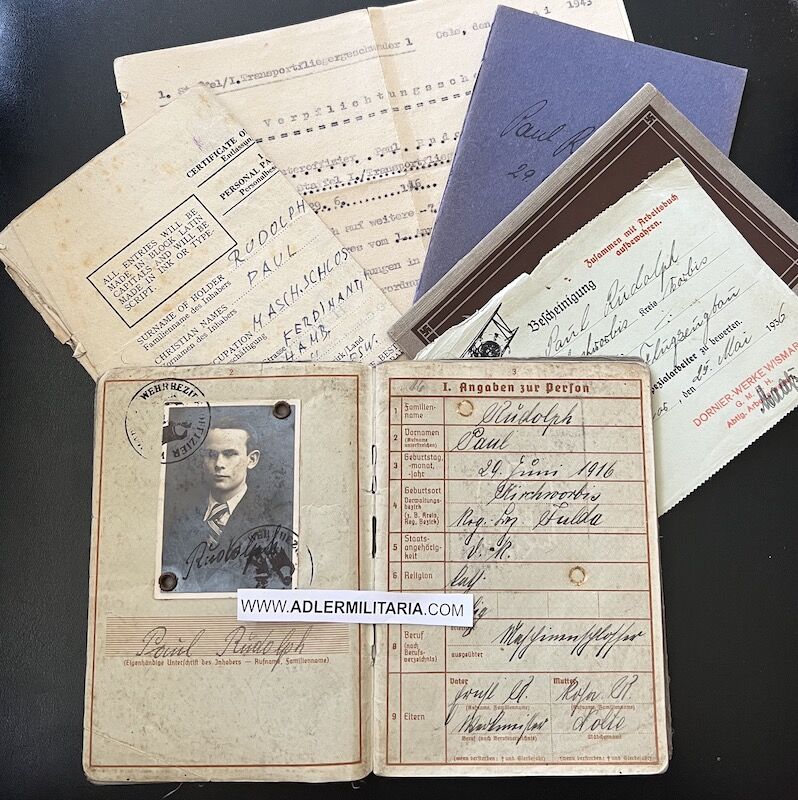 1943
Celo, den
/I. Transportfliegergeschwader 1
Verpflichtungssch
Paul
29.6.
ch auf weitere
es vom 1.
ungen in
Paul R
29.
CERTIFICATE O
Entlassung
PERSONAL PA
Personalbes
ALL ENTRIES WILL BE
MADE IN BLOCK LATIN
CAPITALS AND WILL BE
MADE IN INK OR TYPE-
SCRIPT.
SURNAME OF HOLDER RUDOLPH
Familienname des Inhabers
CHRISTIAN NAMES PAUL
Vornamen des Inhabers
CUPATION MASCH.SCHLOS
FERDINANT
HAMB.
Zusammen mit Arbeitsbuch
aufbewahren.
Bescheinigung
Paul Rudolph
Kreis Worbis
Flugzeugbau
zialarbeiter zu bewerten.
, den 25. Mai 1936
DORNIER-WERKE WISMAR
G. M. H.
Abtlg. Arb
2
WEHRBEZI
OFFIZIER
Rudolph
WWW.ADLERMILITARIA.COM
Paul Rudolph
(Eigenhändige Unterschrift des Inhabers — Rufname, Familienname)
3
I. Angaben zur Person
1 Familien-
name
Rudolph
2 Vornamen
(Rufname
unterstreichen)
Paul
3 Geburtstag,
-monat,
-jahr
29. Juni 1916
4 Geburtsort
Verwaltungs-
bezirk
(z. B. Kreis,
Reg. Bezirk)
Kirchworbis
Reg. Bez. Fulda
5 Staats-
angehörig-
keit
D. R.
6 Religion
kath.
8 Beruf
(nach
Berufs-
verzeichnis)
ausgeübter
Maschinenschlosser
9 Eltern
Vater
R.
(Rufname, Familienname)
Werkmeister
Beruf (nach Berufsverzeichnis)
(wenn verstorben: † und Sterbejahr)
Mutter
Rosa R.
(Rufname, Familienname)
Nolte
Mädchenname
(wenn verstorben: † und Sterbejahr)